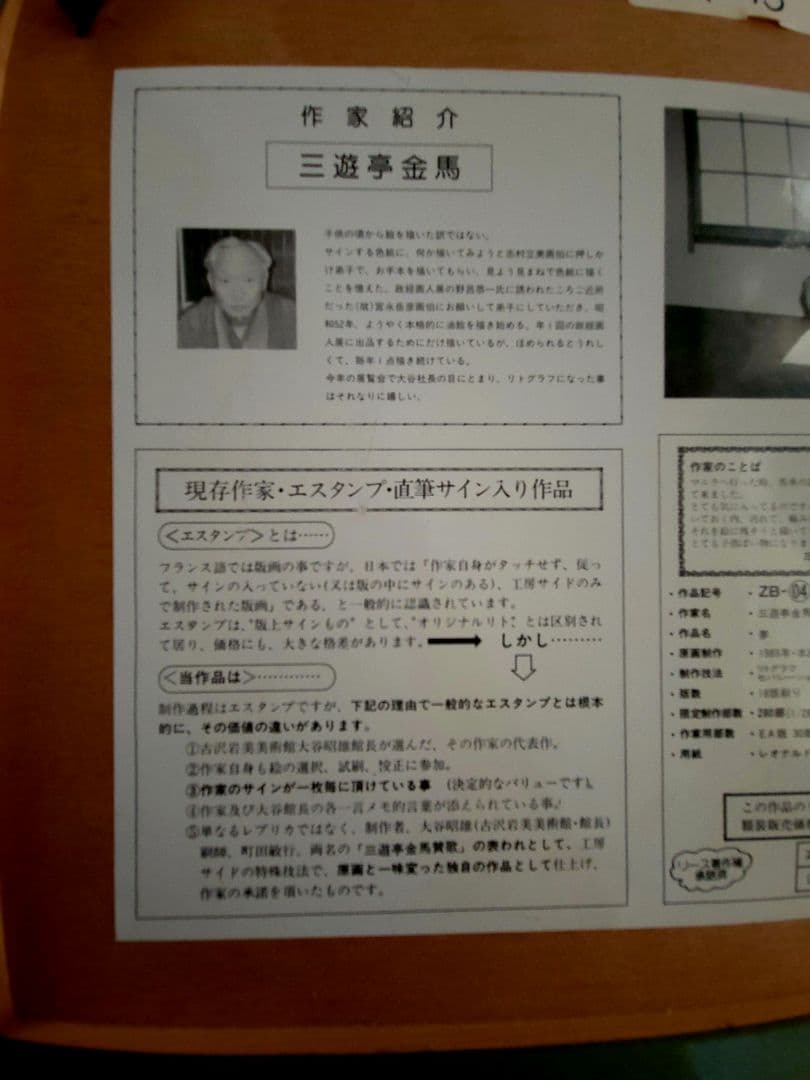 作家紹介
三遊亭金馬
子供の頃から絵を描いた訳ではない。
サインする色紙に、何か描いてみようと志村立美画伯に押しか
け弟子で、お手本を描いてもらい、見よう見まねで色紙に描く
ことを憶えた。政経画人展の野呂恭一氏に誘われたころご近所
だった(故)宮永岳彦画伯にお願いして弟子にしていただき、昭
和52年、ようやく本格的に油絵を描き始める。年1回の政経画
人展に出品するためにだけ描いているが、ほめられるとうれし
くて、毎年1点描き続けている。
今年の展覧会で大谷社長の目にとまり、リトグラフになった事
はそれなりに嬉しい。
現存作家・エスタンプ・直筆サイン入り作品
<エスタンプ>とは……
フランス語では版画の事ですが、日本では「作家自身がタッチせず、従っ
て、サインの入っていない(又は版の中にサインのある)、工房サイドのみ
で制作された版画」である、と一般的に認識されています。
エスタンプは、"版上サインもの"として、"オリジナルリト"とは区別され
て居り、価格にも、大きな格差があります。 しかし………
<当作品は>…………
制作過程はエスタンプですが、下記の理由で一般的なエスタンプとは根本
的に、その価値の違いがあります。
①古沢岩美美術館大谷昭雄館長が選んだ、その作家の代表作。
②作家自身も絵の選択、試刷、校正に参加。
③作家のサインが一枚毎に頂けている事 (決定的なバリューです)。
④作家及び大谷館長の各一言メモ的言葉が添えられている事。
⑤単なるレプリカではなく、制作者、大谷昭雄(古沢岩美美術館・館長)
刷師、町田敏行、両名の「三遊亭金馬賛歌」の表われとして、工房
サイドの特殊技法で、原画と一味変った独自の作品として仕上げ、
作家の承諾を頂いたものです。
作家のことば
て来ました。
・作品記号 ・ZB-04
・作家名 ・三遊亭金馬
・作品名 ・夢
・原画制作
・制作技法 ・リトグラフ
・版数
・限定制作部数
・作家用部数 ・EA版 30部
・用紙 ・レオナルド
この作品の
額装販売価格
リース著作権
承認済